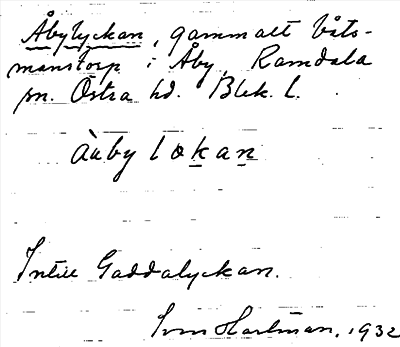 Åbylyckan, gammalt båts-
manstorp i Åby, Ramdala
sn. Östra hd. Blek. l.
Intill Gaddalyckan.
Hartman, 1932